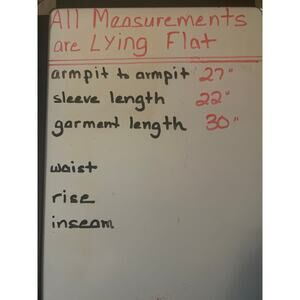 All Measurements
are Lying Flat
armpit to armpit 27"
sleeve length 22"
garment length 30"
waist
rise
inseam